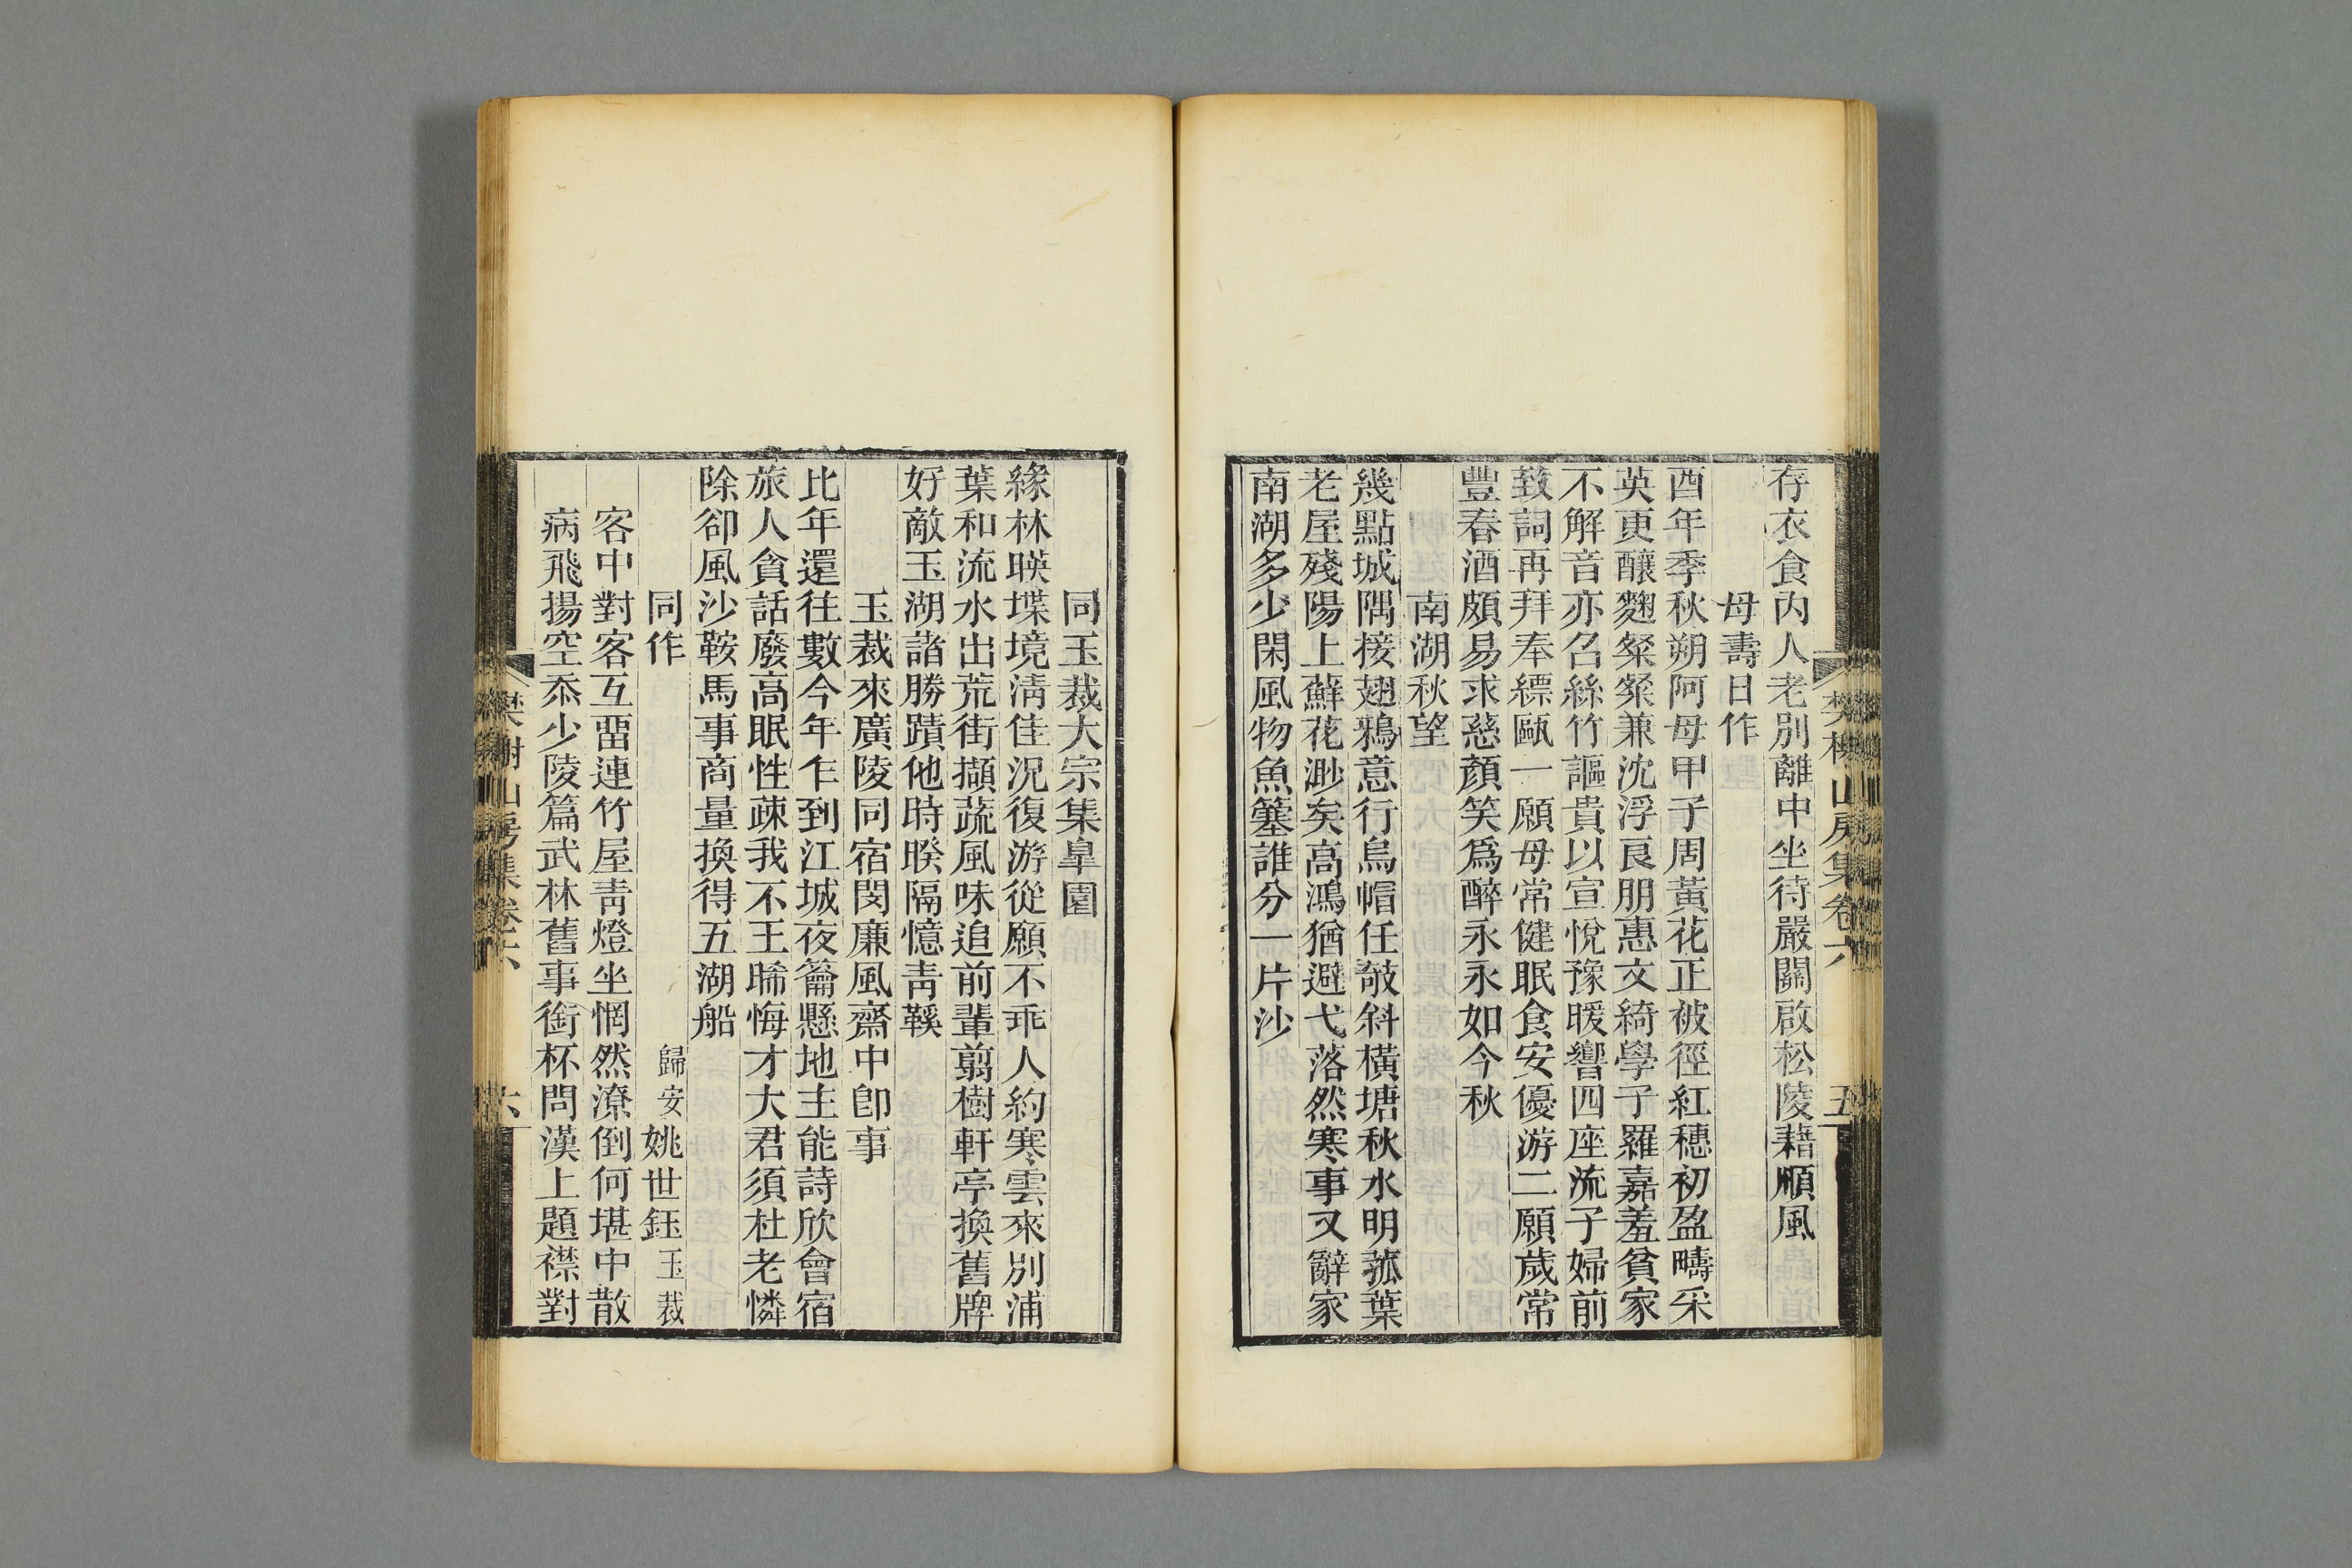 樊榭山房集卷六
五
存衣食內人老別離中坐待嚴關啟松陵藉順風
母壽日作
酉年季秋朔阿母甲子周黃花正被徑紅穗初盈疇采
英更釀麴粲粲兼沈浮良朋惠文綺學子羅嘉羞貧家
不解音亦召絲竹謳貴以宣悅豫暖響四座流子婦前
致詞再拜奉縹甌一願母常健眠食安優游二願歲常
豐春酒頗易求慈顏笑爲醉永永如今秋
南湖秋望
幾點城隅接翅鴉意行烏帽任攲斜橫塘秋水明菰葉
老屋殘陽上蘚花渺矣高鴻猶避弋落然寒事又辭家
南湖多少閑風物魚簺誰分一片沙
同玉裁大宗集臯園
緣林暎堞境淸佳況復游從願不乖人約寒雲來別浦
葉和流水出荒街擷蔬風味追前輩翦樹軒亭換舊牌
好敵玉湖諸勝蹟他時暌隔憶靑鞵
玉裁來廣陵同宿閔廉風齋中卽事
比年還往數今年乍到江城夜籥懸地主能詩欣會宿
旅人貪話廢高眠性疎我不王晞悔才大君須杜老憐
除卻風沙鞍馬事商量換得五湖船
同作 歸安姚世鈺玉裁
客中對客互畱連竹屋靑燈坐惘然潦倒何堪中散
病飛揚空忝少陵篇武林舊事銜杯問漢上題襟對
樊榭山房集卷六
六